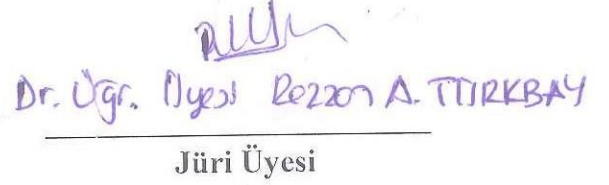 Dr. Öğr. Üyesi Rezzan A. TÜRKBAY
Jüri Üyesi